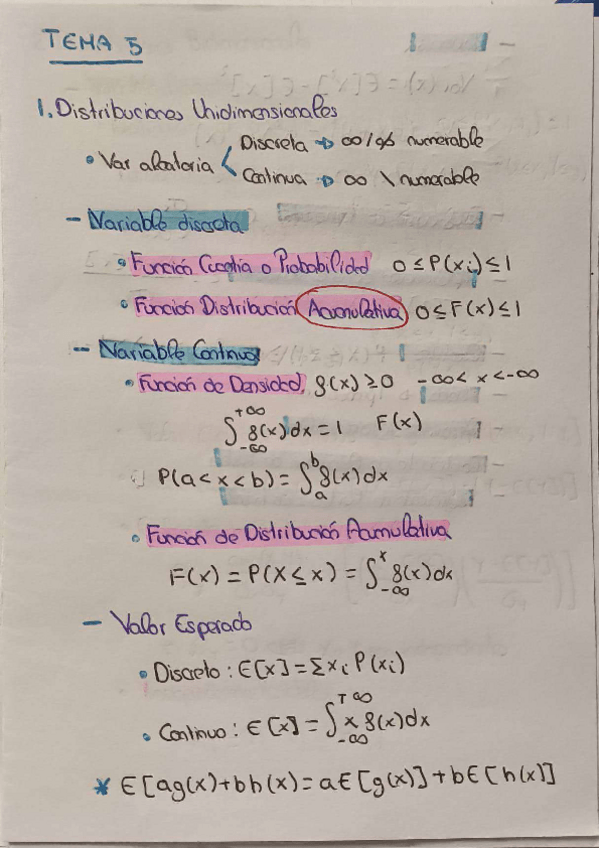 TEMA 5
1. Distribuciones Unidimensionales
• Var aleatoria < Discreta → ∞ numerable
Continua → ∞ \ numerable
- Variable discreta
• Función Cuantía o Probabilidad 0 ≤ P(xi) ≤ 1
• Función Distribución Acumulativa 0 ≤ F(x) ≤ 1
- Variable Continua
• Función de Densidad, f(x) ≥ 0 -∞ < x < -∞
∫_{-∞}^{+∞} f(x) dx = 1 F(x)
P(a < x < b) = ∫_a^b f(x) dx
• Función de Distribución Acumulativa
F(x) = P(X ≤ x) = ∫_{-∞}^x f(x) dx
- Valor Esperado
• Discreto : E[x] = Σ xi P(xi)
• Continuo : E[x] = ∫_{-∞}^{+∞} x f(x) dx
* E[ag(x) + bh(x) = aE[g(x)] + bE[h(x)]